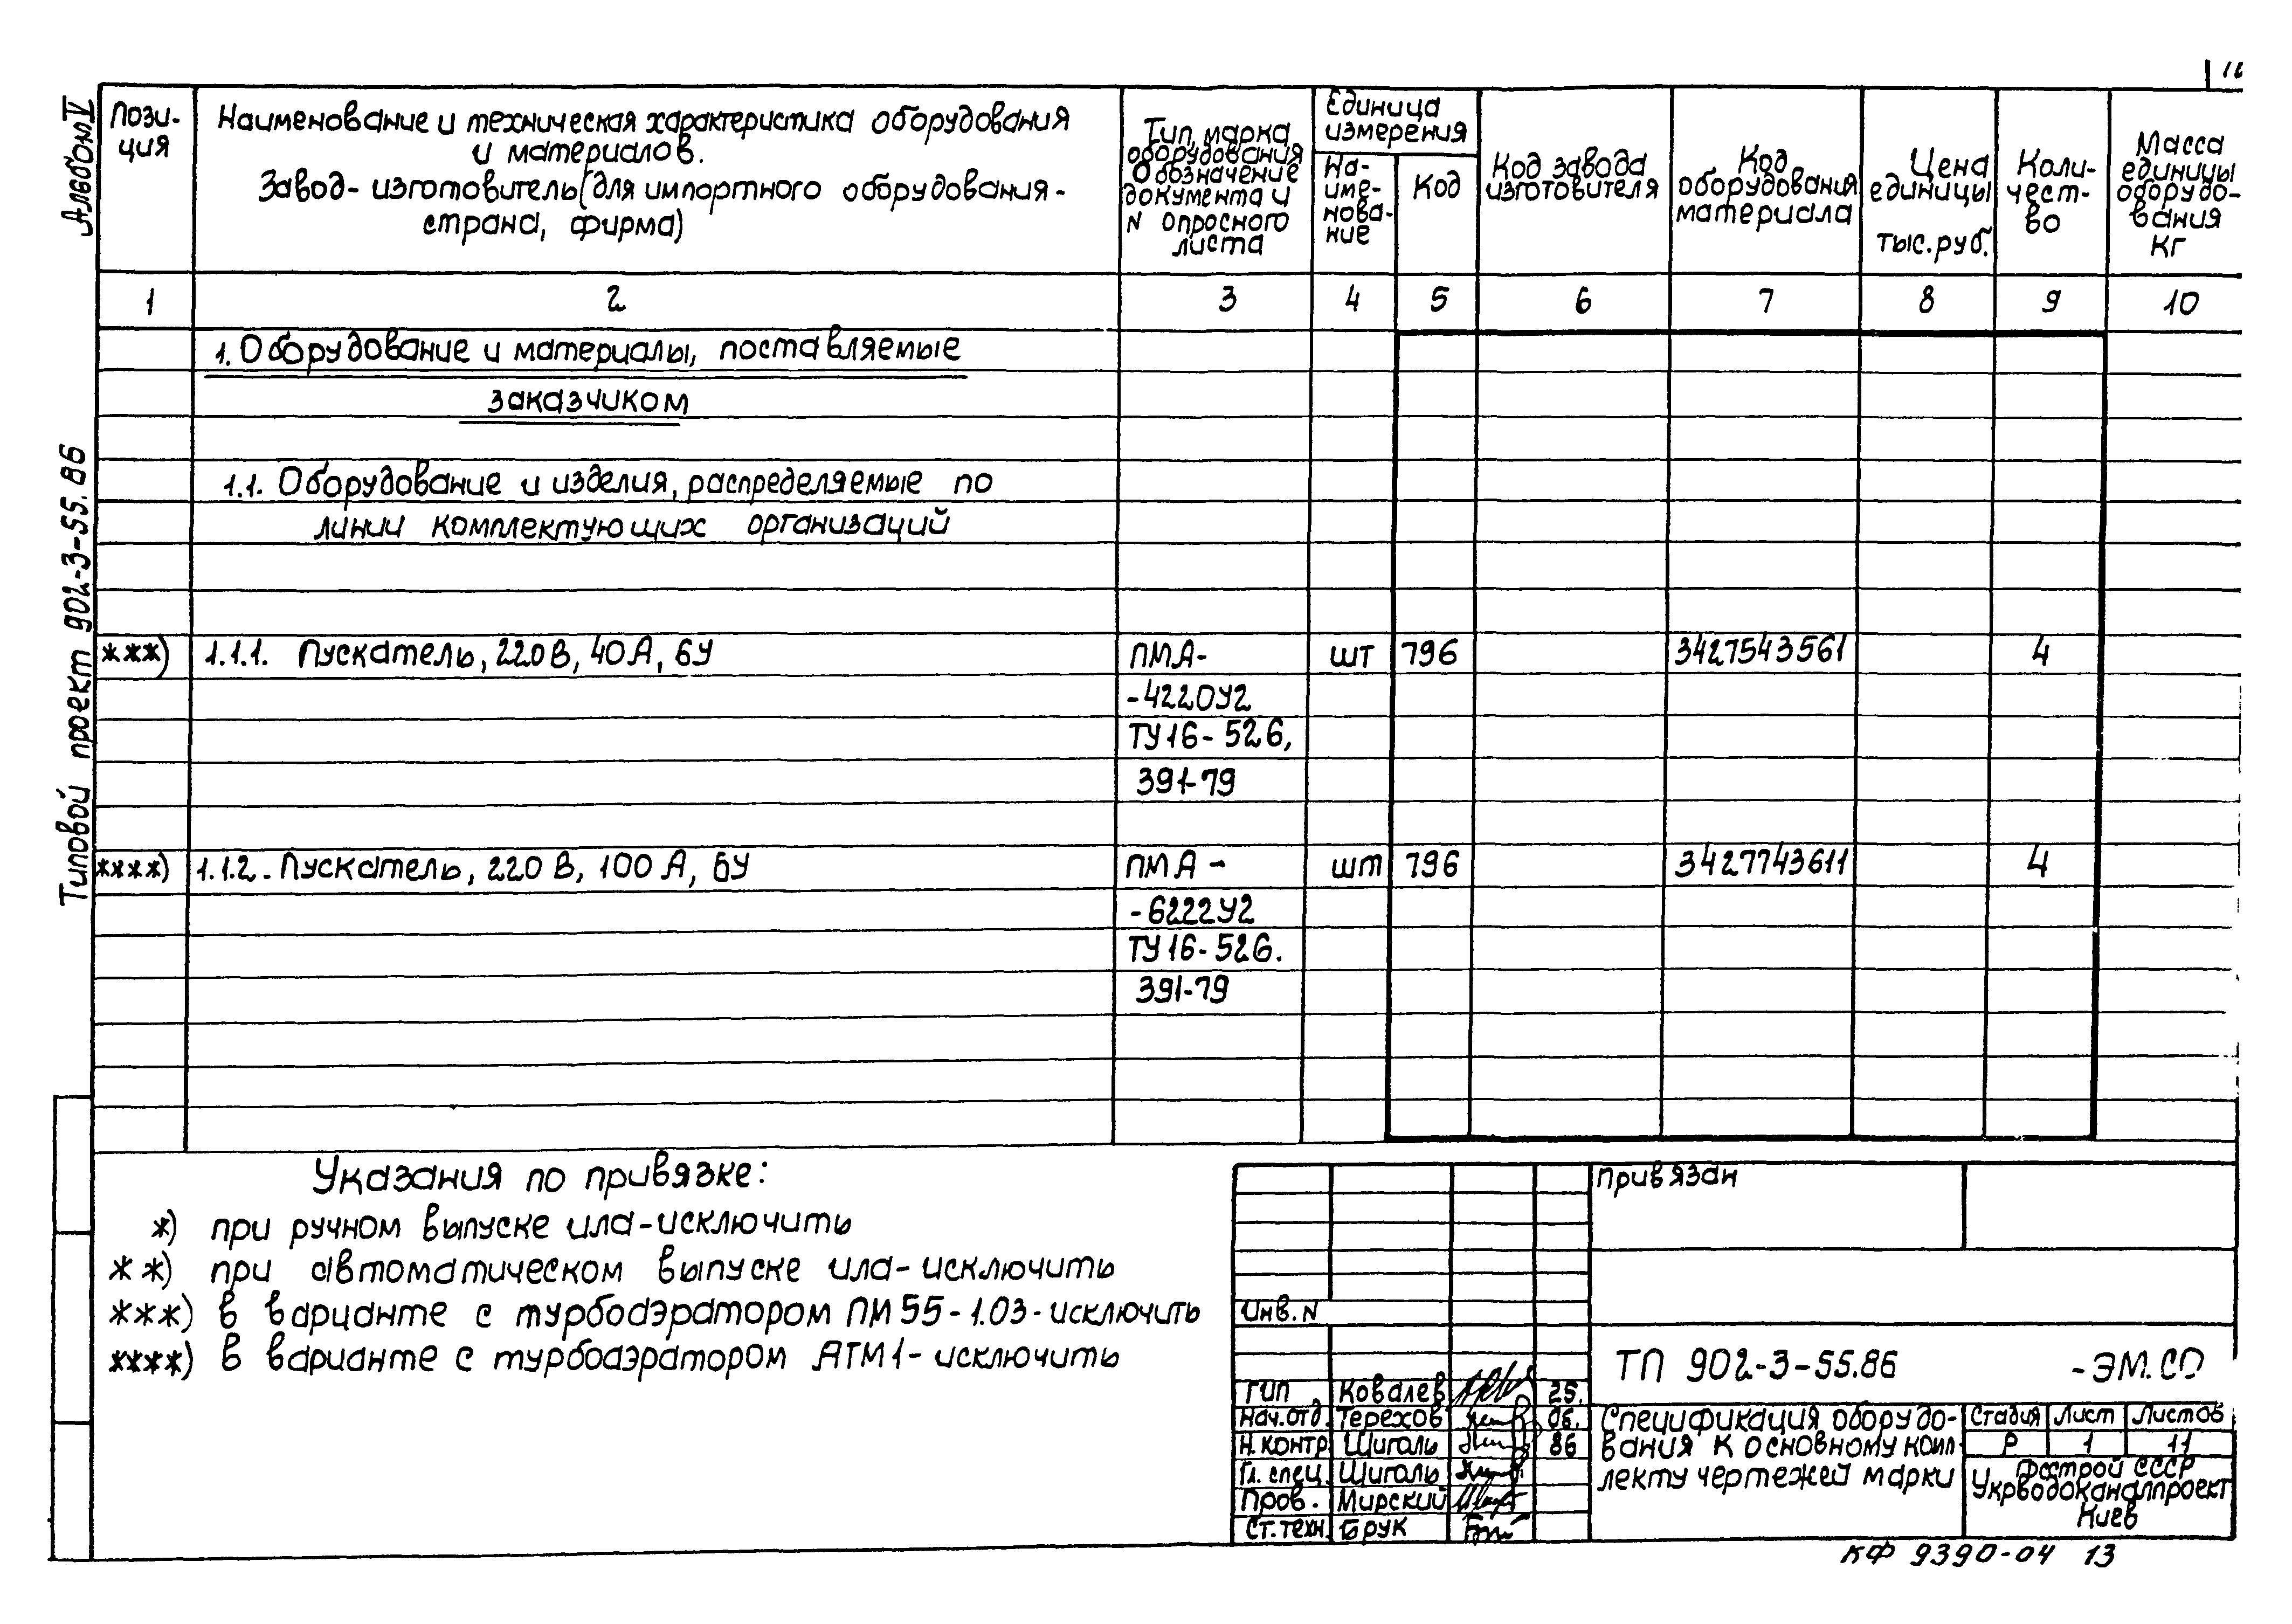 Альбом V
Типовой проект 902-3-55.86
Пози-
ция
Наименование и техническая характеристика оборудования
и материалов.
Завод-изготовитель (для импортного оборудования-
страна, фирма)
Тип, марка
оборудования
Обозначение
документа и
N опросного
листа
Единица
измерения
На-
име-
нова-
ние
Код
Код завода
изготовителя
Код
оборудования
материала
Цена
единицы
тыс.руб.
Коли-
чест-
во
Масса
единицы
оборудо-
вания
кг
1 2 3 4 5 6 7 8 9 10
1. Оборудование и материалы, поставляемые
заказчиком
1.1. Оборудование и изделия, распределяемые по
линии комплектующих организаций
***) 1.1.1. Пускатель, 220В, 40А, БУ ПМА- шт 796 3427543561 4
-4220У2
ТУ16-526,
391-79
****) 1.1.2. Пускатель, 220 В, 100 А, БУ ПМА- шт 796 3427743611 4
-6222У2
ТУ16-526.
391-79
Указания по привязке:
*) при ручном выпуске ила-исключить
**) при автоматическом выпуске ила-исключить
***) в варианте с турбоаэратором ПМ55-1.03-исключить
****) в варианте с турбоаэратором АТМ1-исключить
Привязан
Инв. N
ТП 902-3-55.86 -ЭМ.СО
ГИП Ковалев 25.
Нач.отд. Терехов 06.
Н.контр Шигаль 86
Гл. спец. Шигаль
Пров. Мирский
Ст.техн. Брук
Спецификация оборудо-
вания к основному комп-
лекту чертежей марки
Стадия Лист Листов
Р 1 11
Госстрой СССР
Укрводоканалпроект
Киев
КФ 9390-04 13